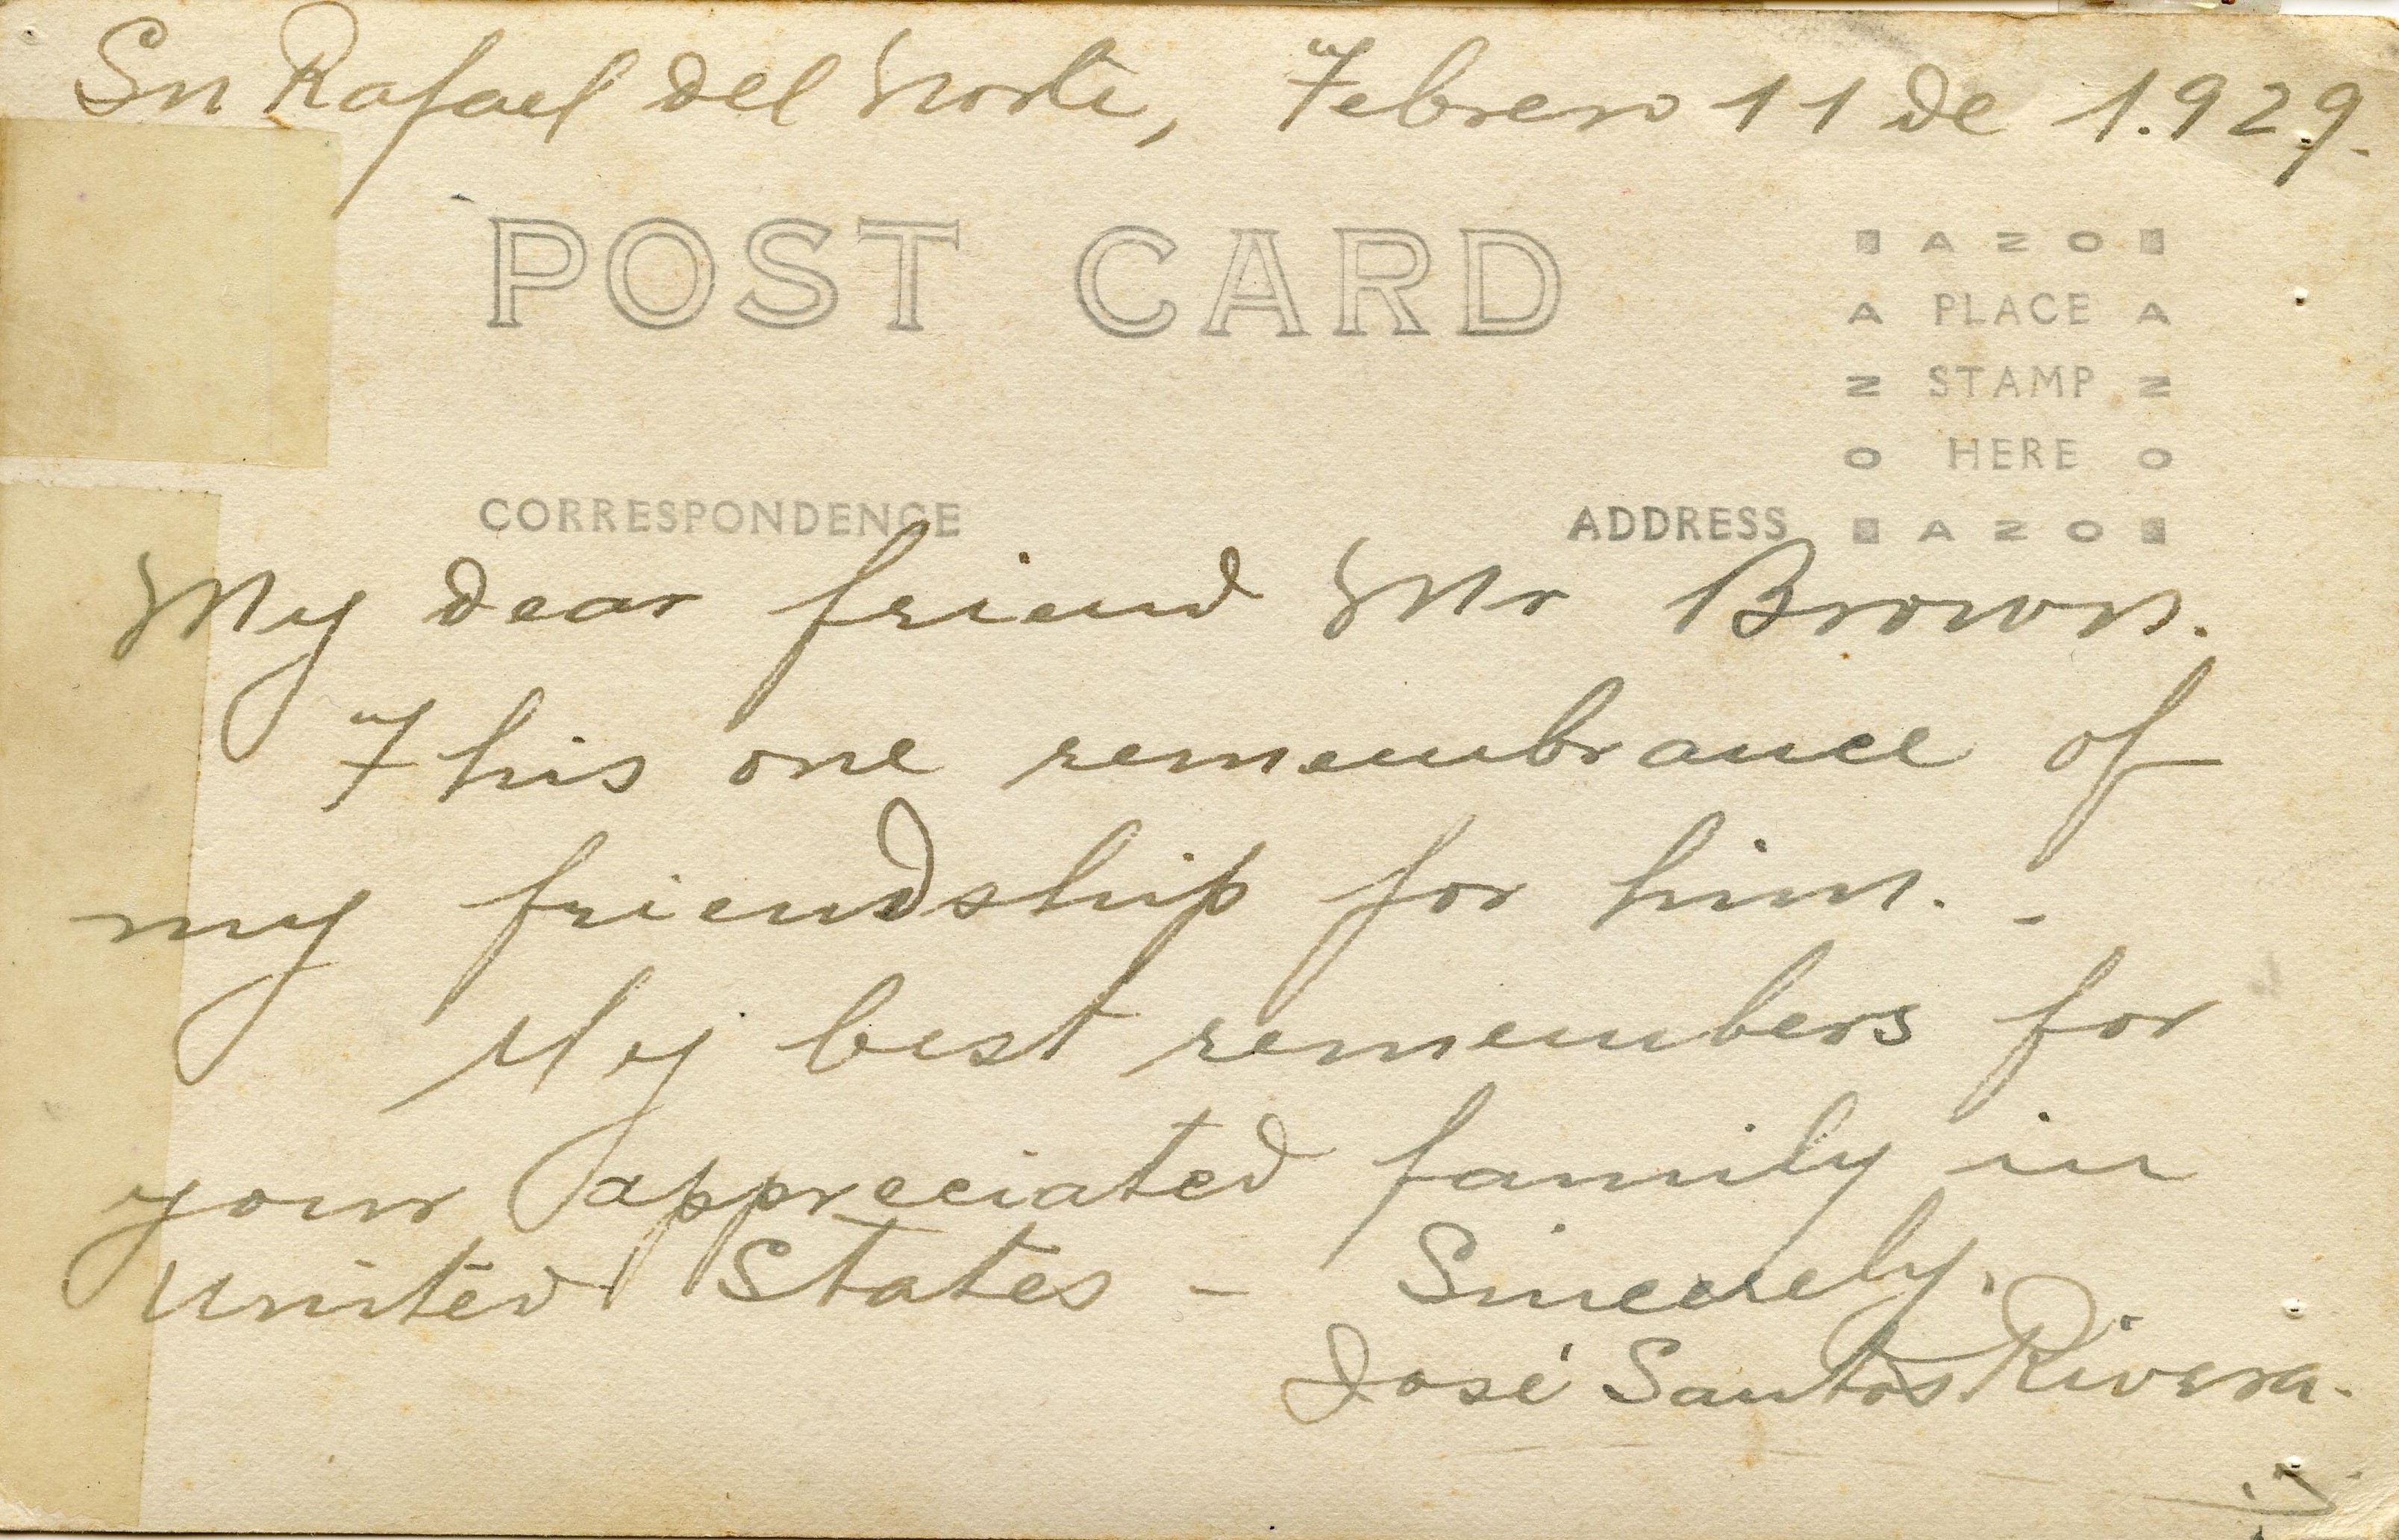 Sn Rafael del Norte, Febrero 11 de 1.929.
POST CARD
AZO
A PLACE A
Z STAMP Z
O HERE O
CORRESPONDENCE ADDRESS AZO
My dear friend Mr Brown.
This one remembrance of
my friendship for him. -
My best remembers for
your appreciated family in
United States - Sincerely.
José Santos Rivera.